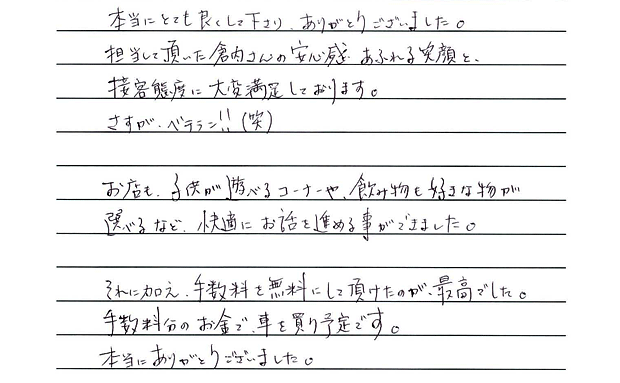 本当にとても良くして下さり、ありがとうございました。
担当して頂いた倉内さんの安心感あふれる笑顔と、
接客態度に大変満足しております。
さすが、ベテラン!!(笑)
お店も、子供が遊べるコーナーや、飲み物も好きな物が
選べるなど、快適にお話を進める事ができました。
それに加え、手数料を無料にして頂けたのが、最高でした。
手数料分のお金で、車を買う予定です。
本当にありがとうございました。